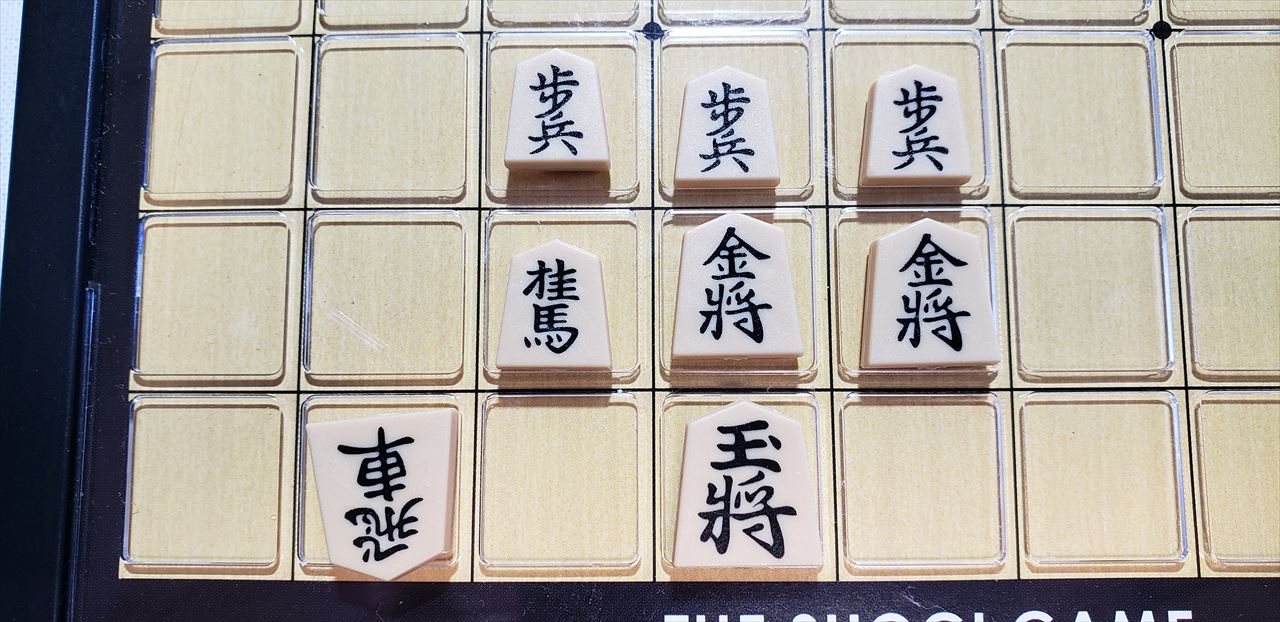 歩兵
歩兵
歩兵
桂馬
金将
金将
飛車
玉将
THE SHOGI GAME